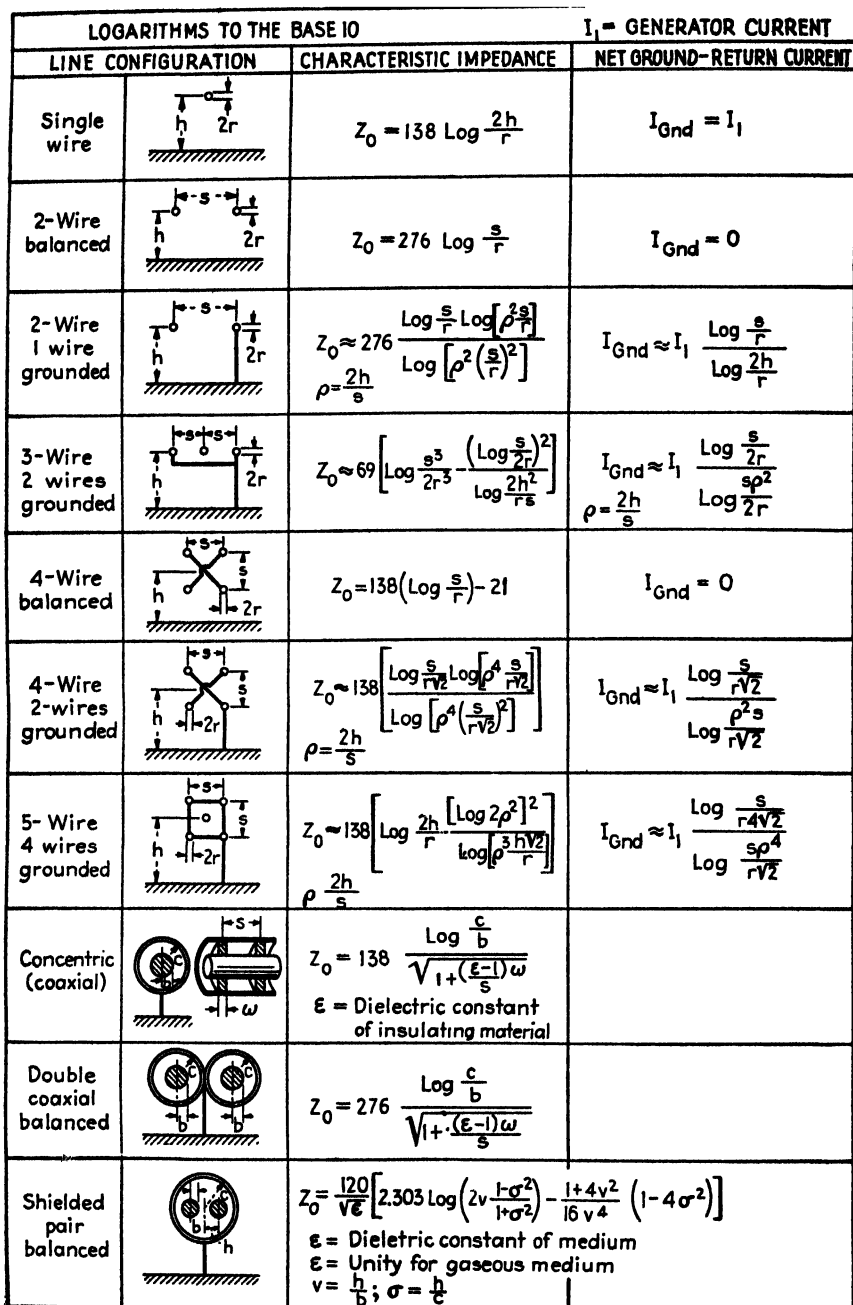 LOGARITHMS TO THE BASE 10 I₁= GENERATOR CURRENT
LINE CONFIGURATION CHARACTERISTIC IMPEDANCE NET GROUND-RETURN CURRENT
Single wire h 2r Z₀ = 138 Log 2h/r I_Gnd = I₁
2-Wire balanced s h 2r Z₀ = 276 Log s/r I_Gnd = 0
2-Wire 1 wire grounded s h 2r Z₀ ≈ 276 (Log s/r Log[ρ² s/r]) / (Log [ρ² (s/r)²]) I_Gnd ≈ I₁ (Log s/r) / (Log 2h/r)
ρ = 2h/s
3-Wire 2 wires grounded s s h 2r Z₀ ≈ 69 [Log s³/2r³ - (Log s/2r)² / (Log 2h²/rs)] I_Gnd ≈ I₁ (Log s/2r) / (Log sρ²/2r)
ρ = 2h/s
4-Wire balanced s s h 2r Z₀ = 138 (Log s/r) - 21 I_Gnd = 0
4-Wire 2-wires grounded s s h 2r Z₀ ≈ 138 [(Log s/r√2 Log[ρ⁴ s/r√2]) / (Log [ρ⁴ (s/r√2)²])] I_Gnd ≈ I₁ (Log s/r√2) / (Log ρ²s/r√2)
ρ = 2h/s
5-Wire 4 wires grounded s s h 2r Z₀ ≈ 138 [Log 2h/r [Log 2ρ²]² / (Log[ρ³ h√2/r])] I_Gnd ≈ I₁ (Log s/r4√2) / (Log sρ⁴/r√2)
ρ 2h/s
Concentric (coaxial) c b s ω Z₀ = 138 (Log c/b) / √(1+((ε-1)/s)ω)
ε = Dielectric constant
of insulating material
Double coaxial balanced c c b b Z₀ = 276 (Log c/b) / √(1+·(ε-1)ω/s)
Shielded pair balanced c b h Z₀ = 120/√ε [2.303 Log (2v (1-σ²)/(1+σ²)) - (1+4v²)/(16v⁴) (1-4σ²)]
ε = Dieletric constant of medium
ε = Unity for gaseous medium
v = h/b ; σ = h/c